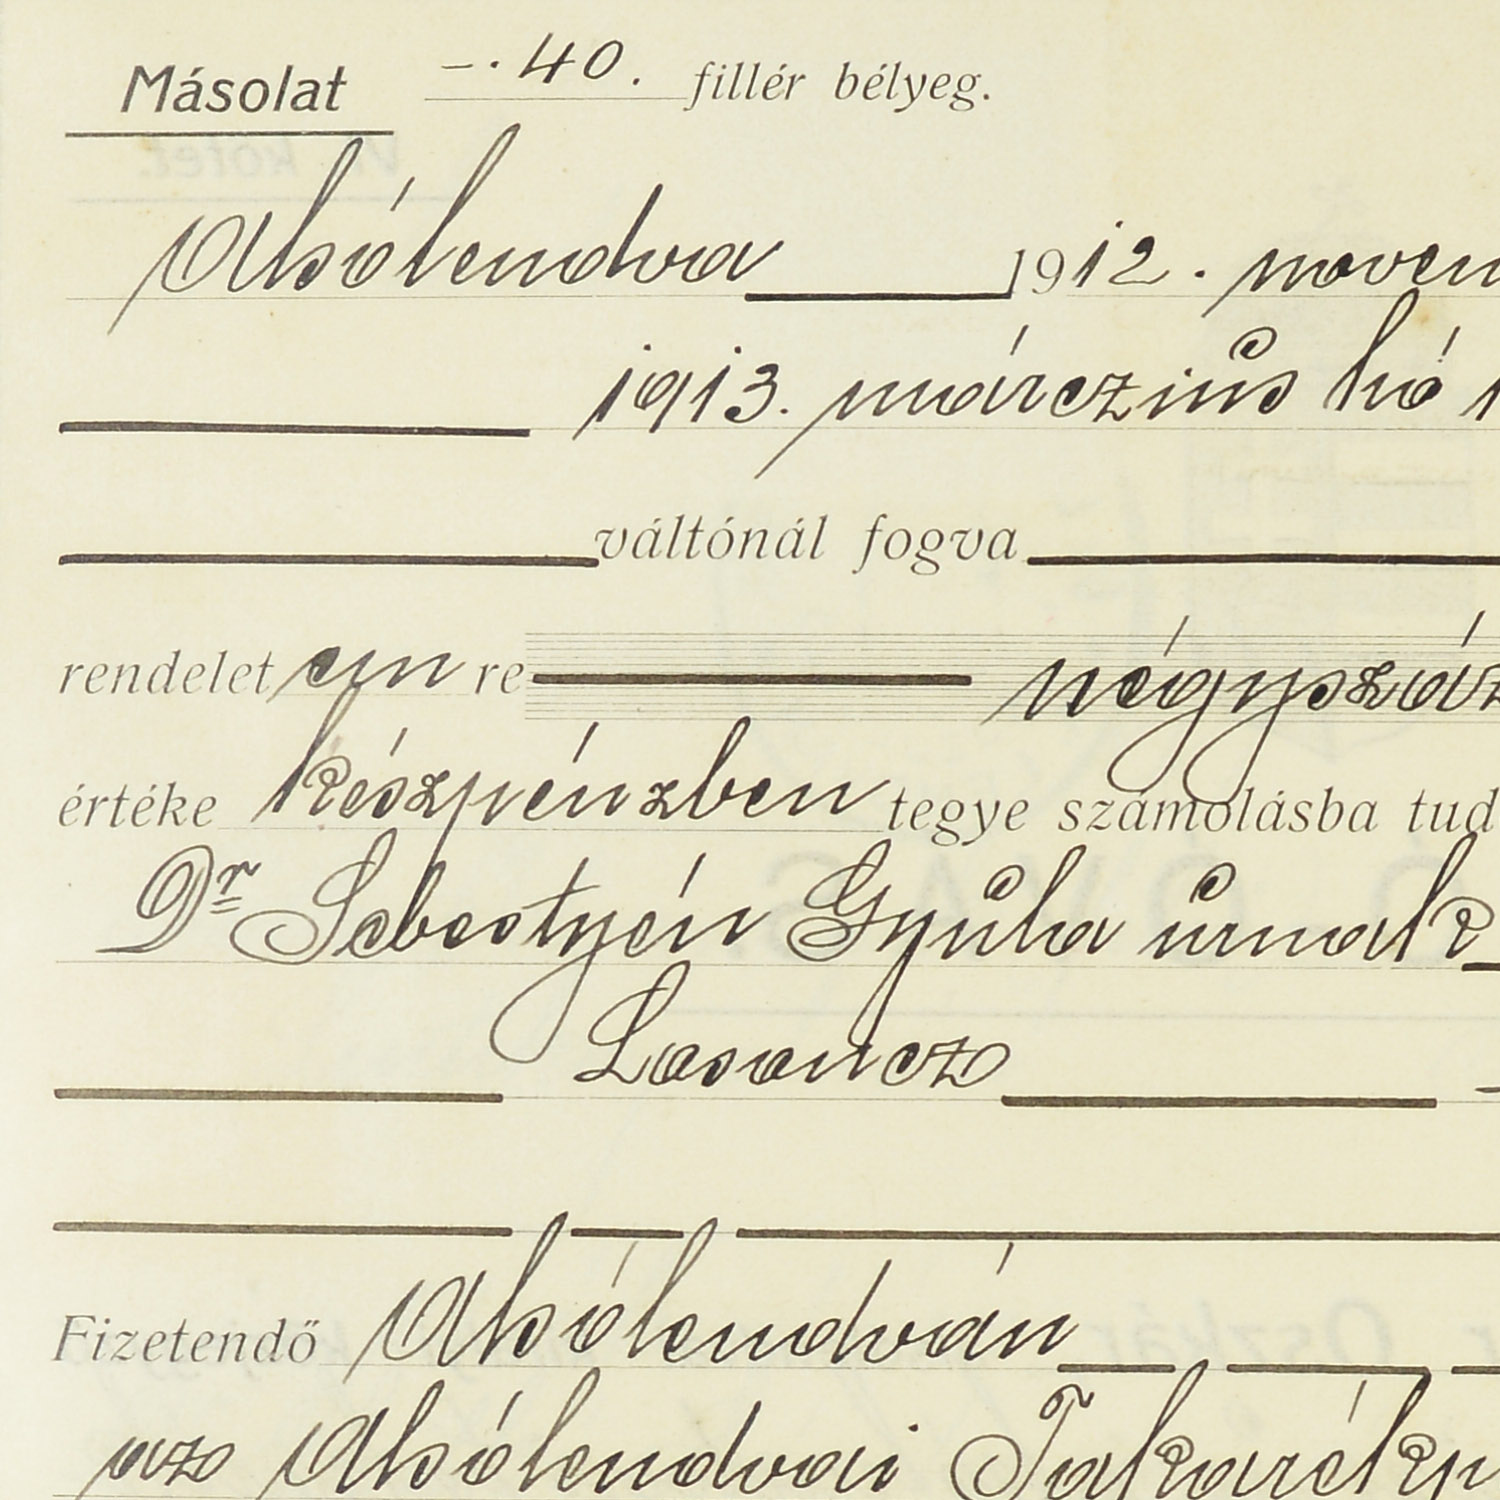 Másolat —.40. fillér bélyeg.
Alsólendva 1912. novem
1913. márczius hó 1
váltónál fogva
rendelet em re négyszáz
értéke készpénzben tegye számolásba tud
Dr Sebestyén Gyula úrnak
Losoncz
Fizetendő Alsólendván
az Alsólendvai Takarékp